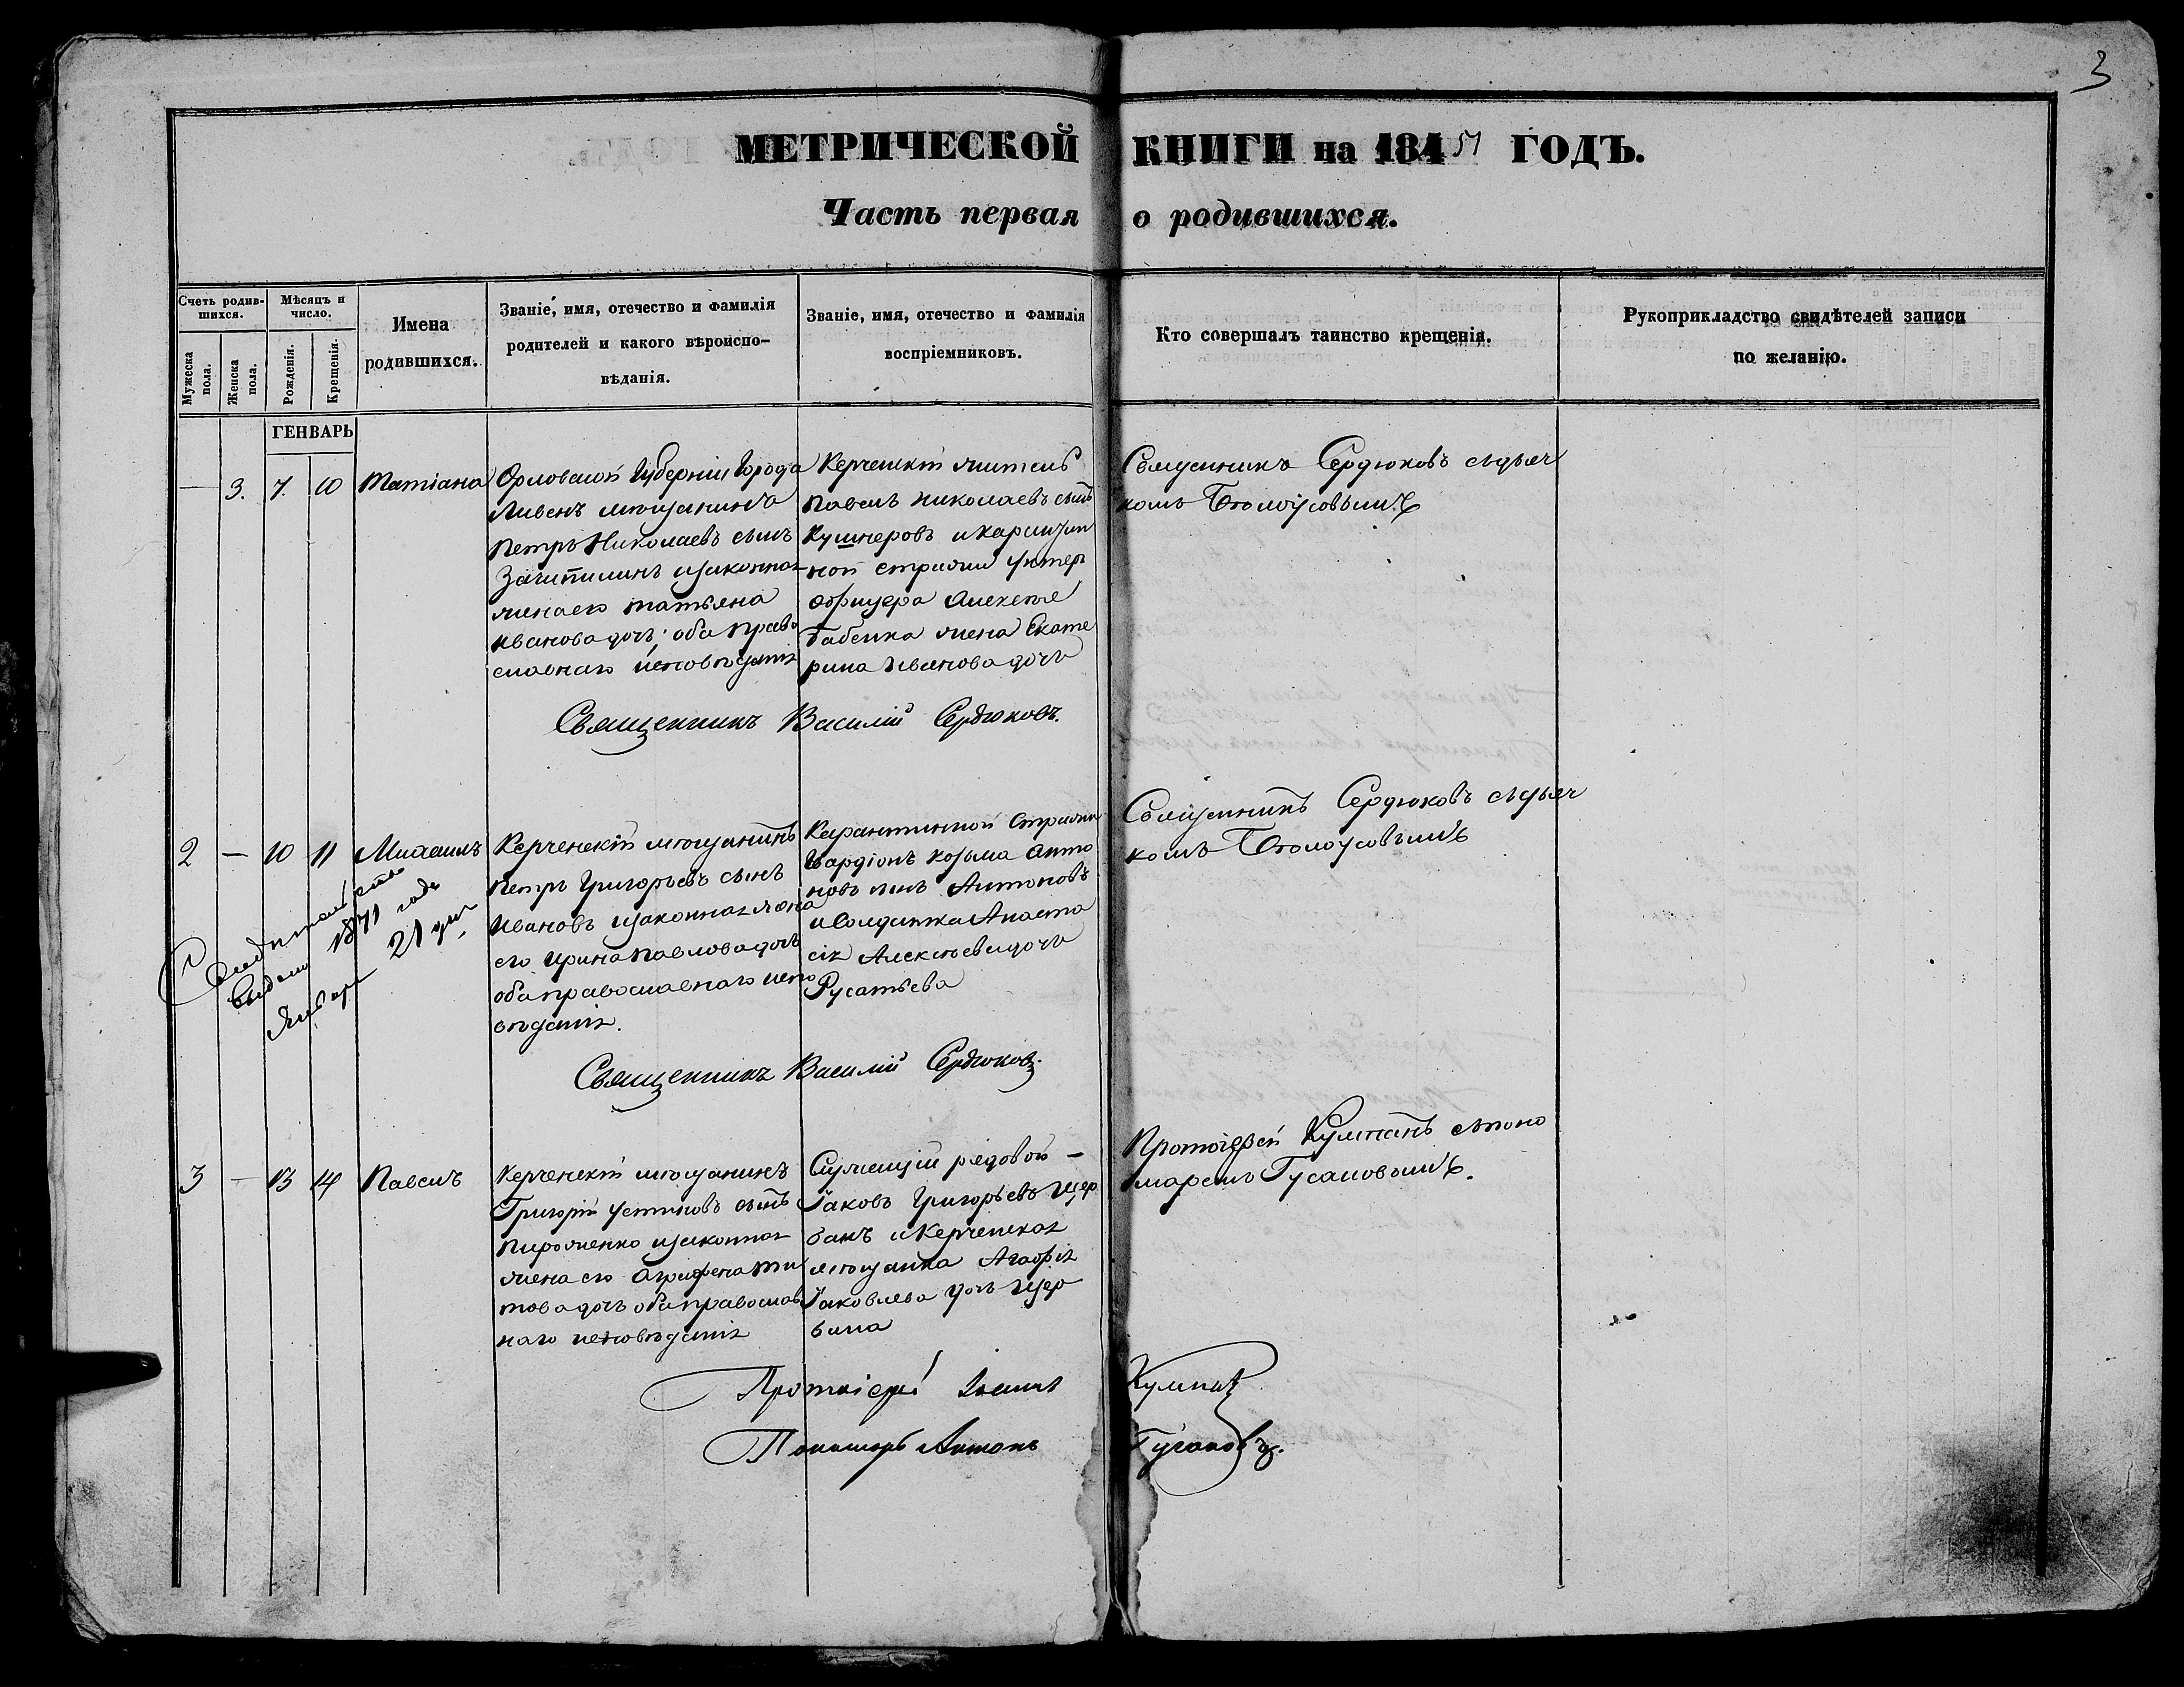 3
МЕТРИЧЕСКОЙ КНИГИ на 18451 ГОДЪ.
Часть первая о родившихся.
Счетъ родив-
шихся.
Мужеска
пола.
Женска
пола.
Мѣсяцъ и
число.
Рожденія.
Крещенія.
Имена
родившихся.
Званіе, имя, отечество и фамилія
родителей и какого вѣроиспо-
вѣданія.
Званіе, имя, отечество и фамилія
воспріемниковъ.
Кто совершалъ таинство крещенія.
Рукоприкладство свидѣтелей записи
по желанію.
ГЕНВАРЬ
— 3. 7. 10 Татіана
Орловской Губерніи Города
Ливенъ мѣщанинъ
Петръ Николаевъ сынъ
изаконная
жена его Татьяна
Иванова дочь; оба право
славнаго исповѣданія
Керченскій житель
Павелъ Николаевъ сынъ
Кушнеровъ и карантин
ной стражи унтеръ
офицера Алексѣя
Бабенка жена Екате
рина Иванова дочь
Священникъ Сердюковъ съ дьяч
комъ Бѣлоусовымъ
Священникъ Василій Сердюковъ.
2 — 10 11 Михаилъ
Свидетельство
выдано 1871 года
Января 21 дня
Керченскій мѣщанинъ
Петръ Григорьевъ сынъ
Ивановъ изаконная жена
его Ирина Павлова дочь
оба православнаго испо
вѣданія.
Карантинной Стражи
Гвардіонъ Козьма Анто
новъ сынъ Антоновъ
и Солдатка Анаста
сія Алексѣева дочь
Русатьева
Священникъ Сердюковъ съ дьяч
комъ Бѣлоусовымъ
Священникъ Василій Сердюковъ.
3 — 13 14 Павелъ
Керченскій мѣщанинъ
Григорій Устиновъ сынъ
Пироженко изаконная
жена его Агрифена Ти
това дочь оба православ
наго исповѣданія
Служащій рядовой —
Іаковъ Григорьевъ Щер
бакъ и Керченская
мѣщанка Агафія
Іаковлева дочь Щер
бина
Протоіерей Кумпанъ съ поно
маремъ Гусаковымъ.
Протоіерей Іоаннъ Кумпанъ
Пономарь Антонъ Гусаковъ.